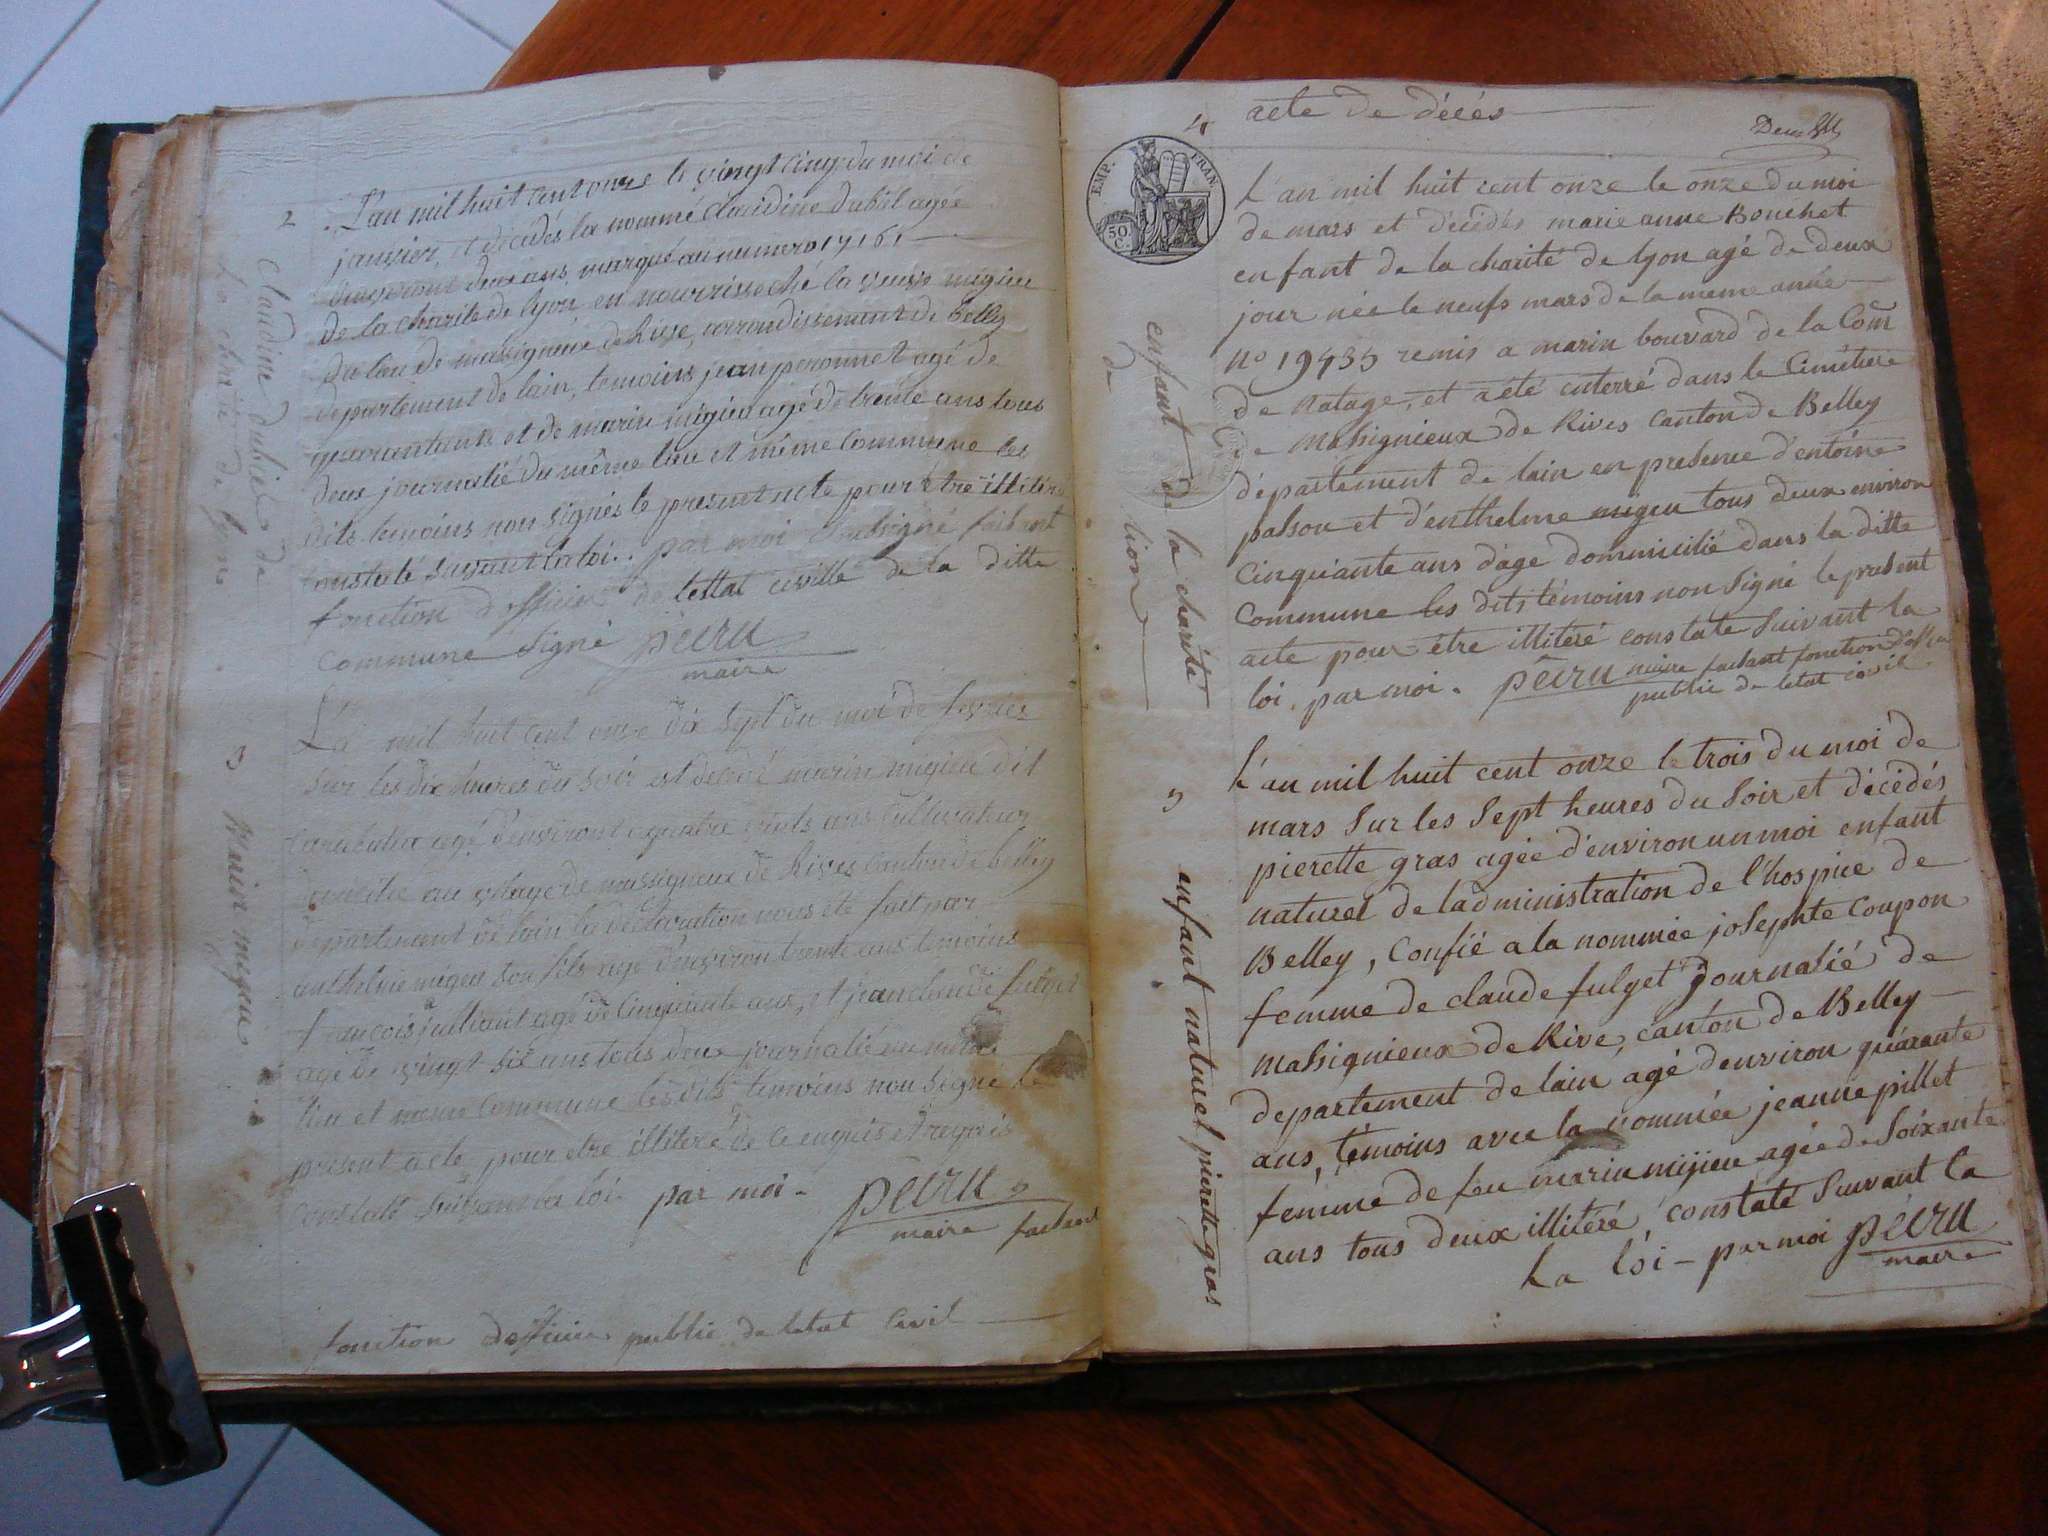 2
Claudine dubiel de
la charité de lyon
L'an mil huit cent onze le vingt cinq du moi de
janvier, et décédés la nommé Claudine dubil agée
denviront deux ans, marqué au numero 17161
de la charité de lyon, en nourrisse ché la veuve migieu
du lieu de massigneux de Rive, arrondissement de belley
département de lain, temoins jean peronnet agé de
quarantans et de marin migieu agé de trente ans tous
deux journalié du même lieu et même commune les
dits temoins non signés le present acte pour etre illitéré
constaté suivant la loi. par moi soussigné faisant
fonction d'officier de lettat civille de la ditte
commune signé péüru
maire
3
Marin migieu
L'an mil huit cent onze dix sept du moi de fevrier
sur les dix heures du soir est decedé marin migieu dit
agé d'environt quatre vints ans cultivateur
au vilage de massigneux de Rives canton de belley
departement de lain la déclaration nous été fait par
anthelme migieu son fils agé d'environ trente ans temoins
francois agé de cinquante ans, et jean claude fulget
agé de vingt six ans tous deux journalié du même
lieu et meme commune lesdits temoins non signé le
present acte pour etre illiteré de ce enquis et requis
constaté suivant la loi. par moi - péüru
maire faisant
fonction d'officier public de letat civil
acte de décés
Deux
4
EMP. FRAN.
50 C.
enfant de la charité
de lion
L'an mil huit cent onze le onze du moi
de mars et décédés marie anne Bouchet
enfant de la charité de lyon agé de deux
jour née le neufs mars de la meme année
no 19435 remis a marin bouvard de la Com
de natage, et a été enterré dans le Cimétiere
de Massignieux de Rives canton de Belley
département de lain en presence d'entoine
passou et d'enthelme migieu tous deux environ
cinquante ans d'age dommicilié dans la ditte
commune les dits témoins non signé le present
acte pour être illiteré constaté suivant la
loi, par moi. péüru maire faisant fonction d'officier
public de letat civil
5
enfant naturel pierette gras
L'an mil huit cent onze le trois du moi de
mars sur les sept heures du soir et décédés
pierette gras agée d'environ un moi enfant
naturel de ladministration de l'hospice de
Belley, confié a la nommée josephte coupon
femme de claude fulget journalié de
massignieux de Rive, canton de Belley
departement de lain agé denviron quarante
ans, témoins avec la nommée jeanne pillet
femme de feu marin mijieu agée de soixante
ans tous deux illitéré, constaté suivant la
la loi - par moi péüru
maire